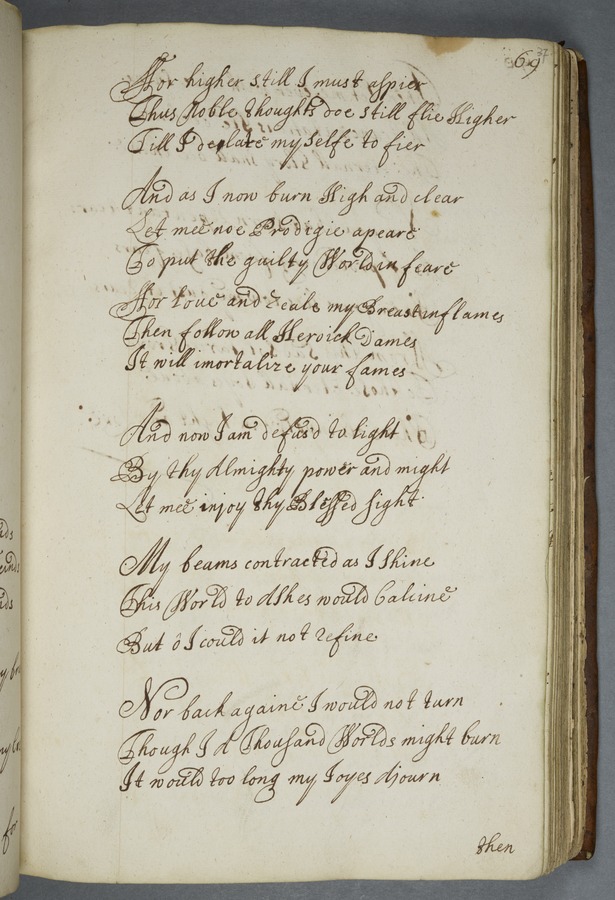 69
37
For higher still I must aspier
Thus Noble thoughts doe still flie Higher
Till I declare my selfe to fier
And as I now burn High and clear
Let mee noe Prodigie apeare
To put the guilty World in feare
For Love and Zeale my Breast inflames
Then follow all Heroick Dames
It will imortalize your fames
And now I am defus'd to light
By thy Almighty power and might
Let mee injoy thy Blessed sight
My beams contracted as I shine
This World to Ashes would Calcine
But ô I could it not refine
Nor back againe I would not turn
Though I d Thousand Worlds might burn
It would too long my Joyes djourn
then